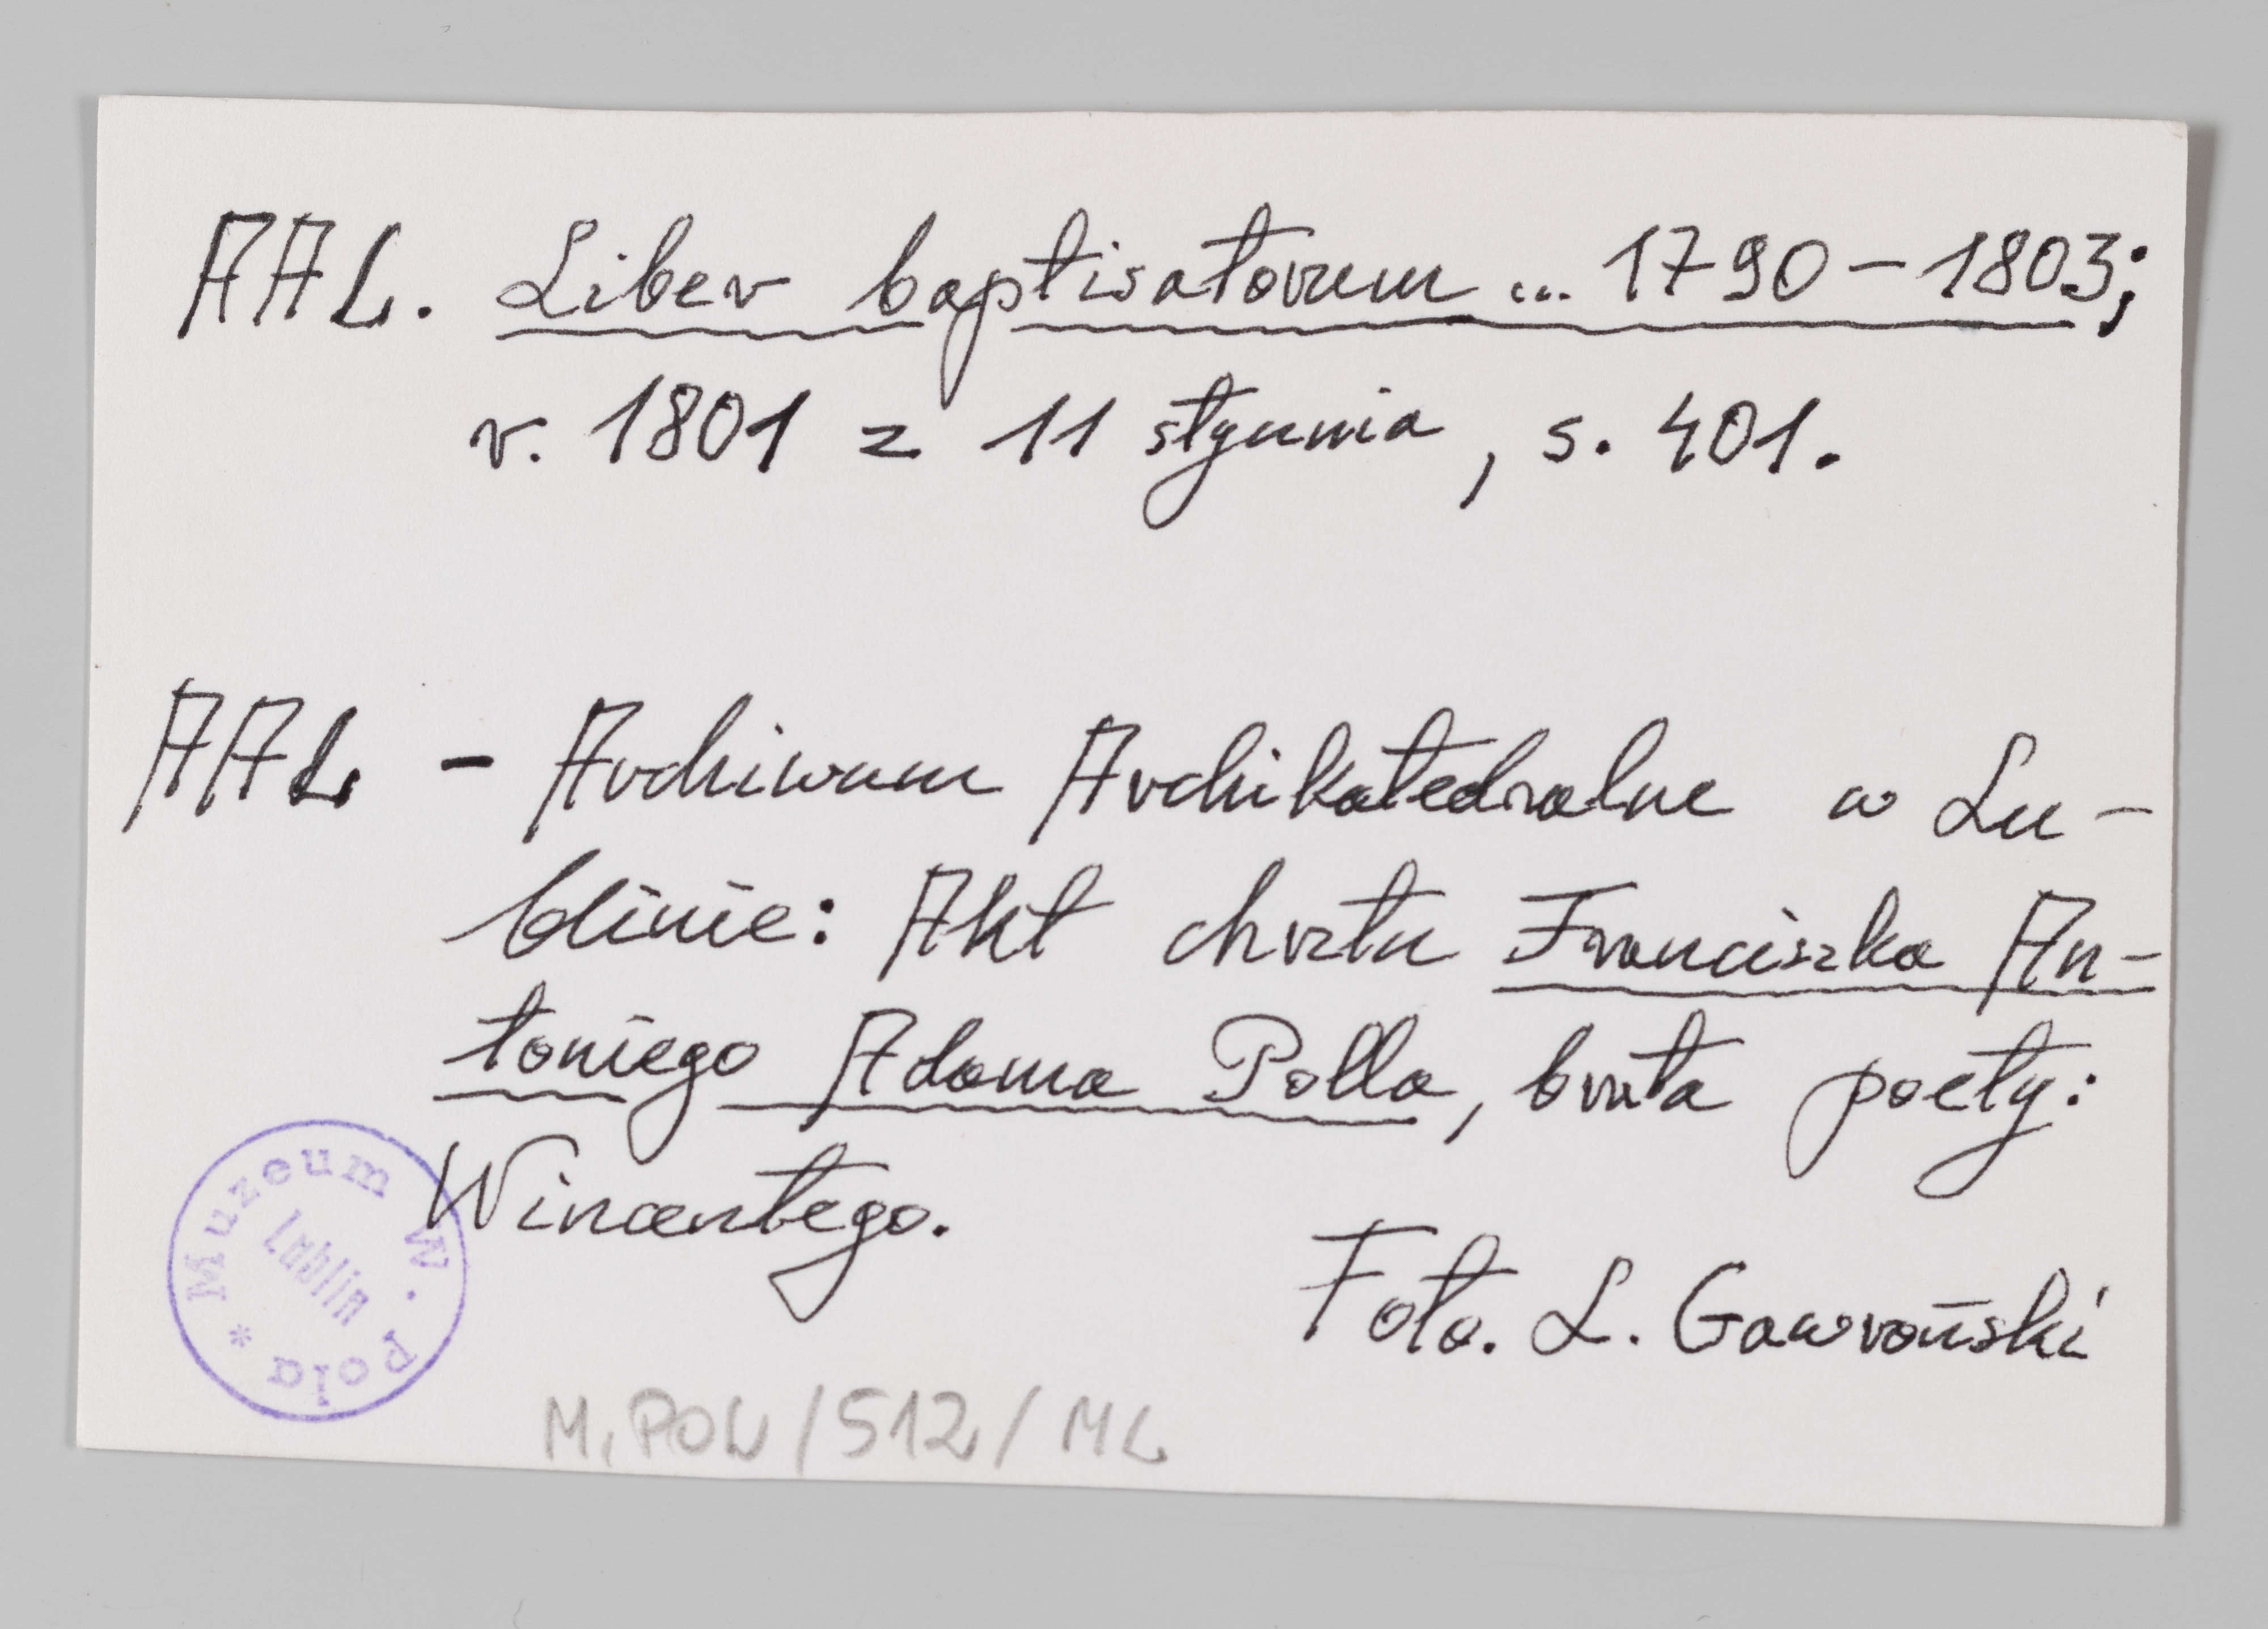 AAL. Liber baptisatorum ... 1790 - 1803;
r. 1801 z 11 stycznia, s. 401.
AAL - Archiwum Archikatedralne w Lu-
blinie: Akt chrztu Franciszka An-
toniego Adama Polla, brata poety:
Wincentego.
Foto. L. Gawroński
* Muzeum W. Pola
Lublin
M. POL/512/ML